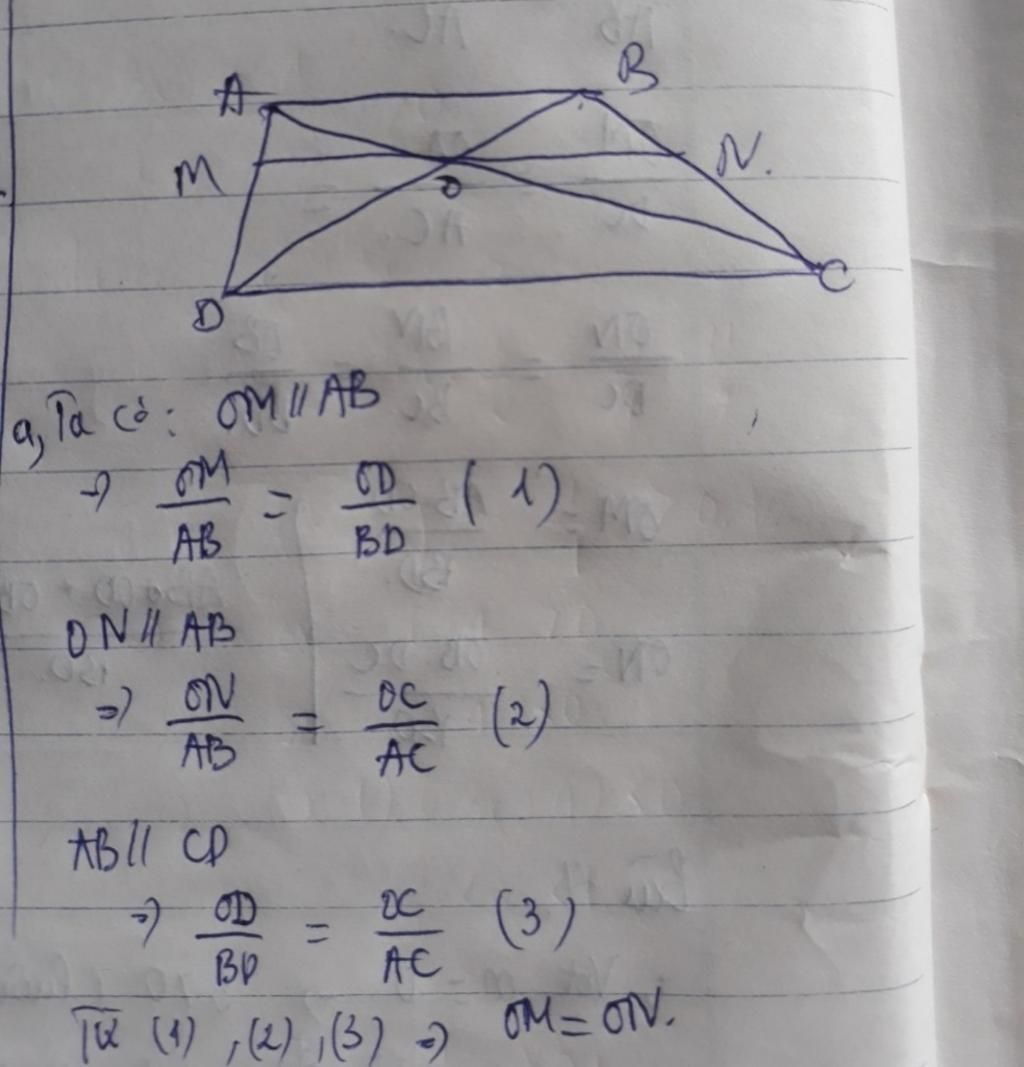 A B
M N.
O
D C
a, Ta có: OM // AB
⇒ OM/AB = OD/BD (1)
ON // AB
⇒ ON/AB = OC/AC (2)
AB // CD
⇒ OD/BD = OC/AC (3)
Từ (1), (2), (3) ⇒ OM = ON.